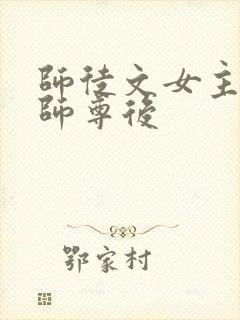 師徒文女主
師尊後
鄂家村